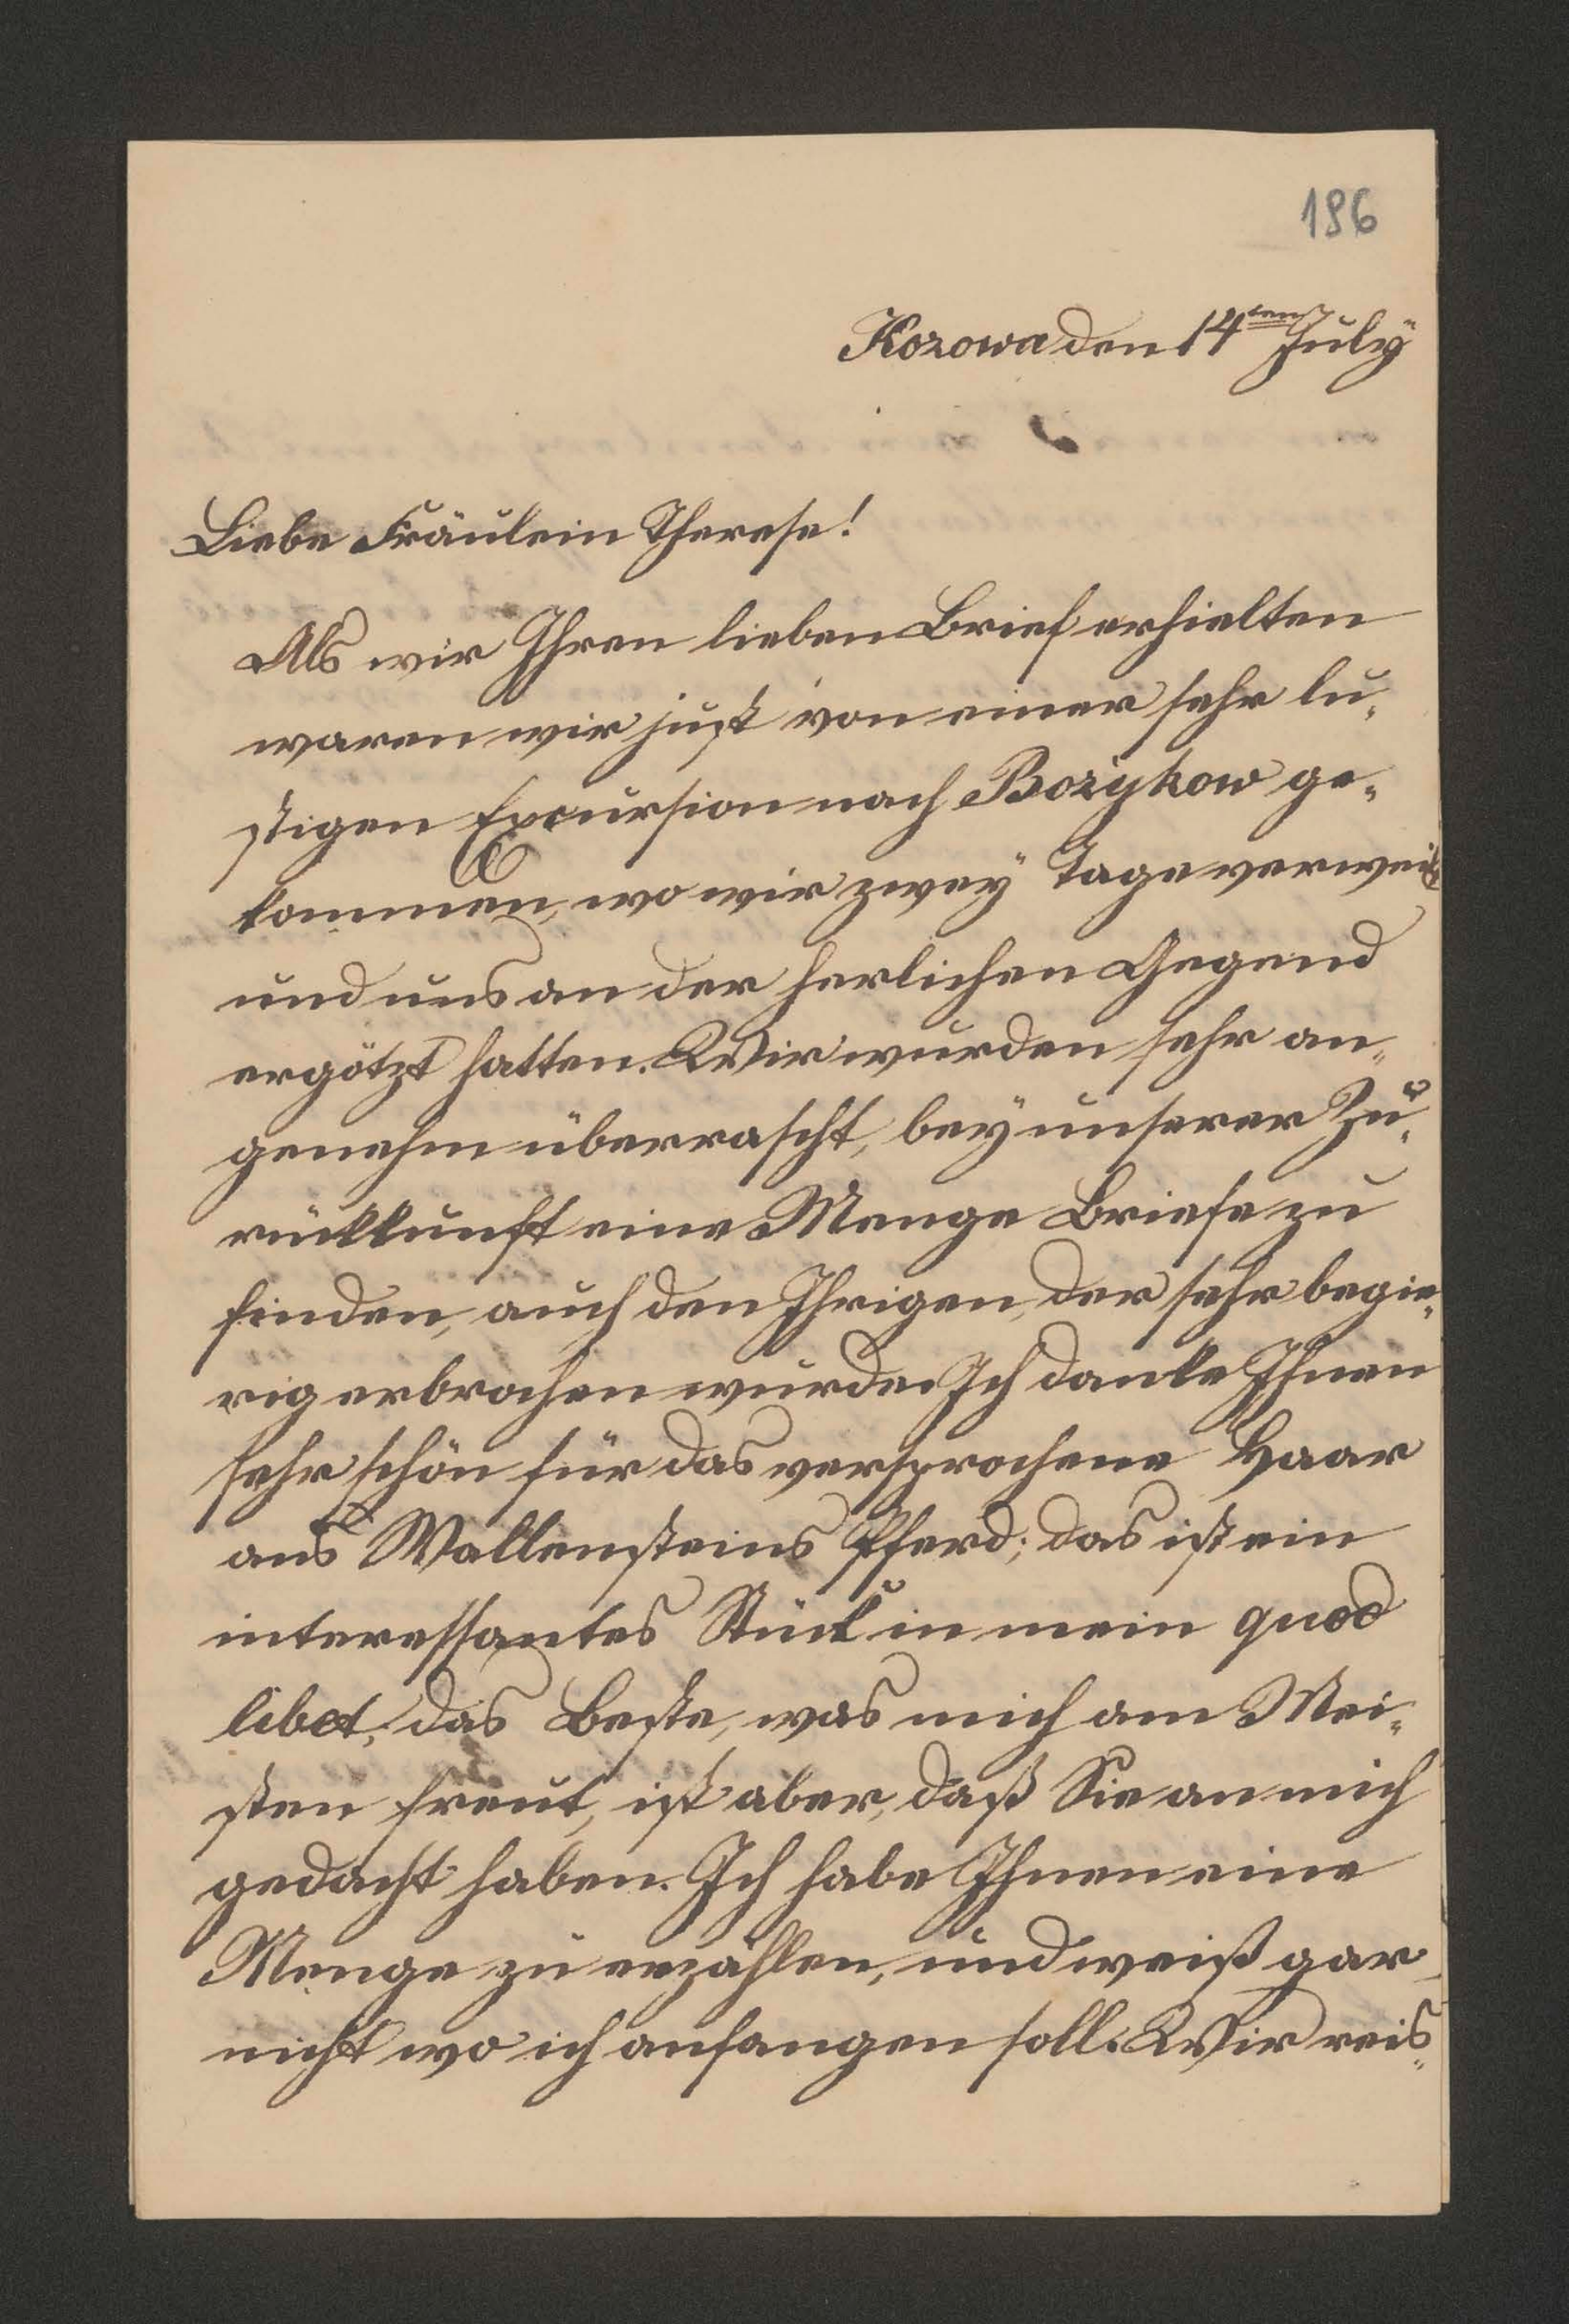 186
Kozowa den 14ten July
Liebe Fräulein Therese!
Als wir Ihren lieben Brief erhielten
waren wir just von einer sehr lu„
stigen Excursion nach Bozykow ge„
kommen, wo wir zwey Tage verweilt
und uns an der herlichen Gegend
ergötzt hatten. Wir wurden sehr an„
genehm überrascht, bey unserer Zu„
rückkunft eine Menge Briefe zu
finden, auch den Ihrigen, der sehr begie„
rig erbrochen wurde. Ich danke Ihnen
sehr schön für das versprochene Haar
aus Wallensteins Pferd; das ist ein
interessantes Stück in mein quod
libet; das Beste, was mich am Mei„
sten freut, ist aber, daß Sie an mich
gedacht haben. Ich habe Ihnen eine
Menge zu erzählen, und weiß gar
nicht wo ich anfangen soll. Wir reis„